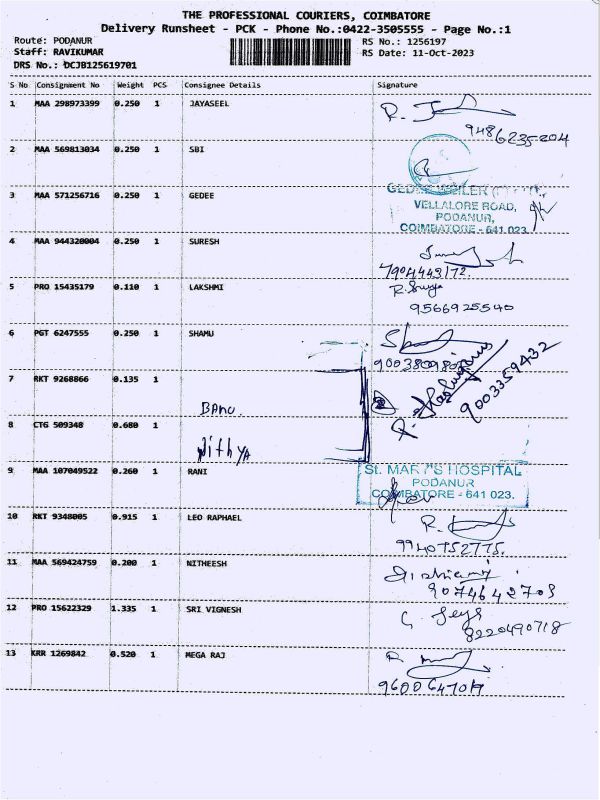 THE PROFESSIONAL COURIERS, COIMBATORE
Delivery Runsheet - PCK - Phone No.:0422-3505555 - Page No.:1
Route: PODANUR
Staff: RAVIKUMAR
DRS No.: DCJB125619701
RS No.: 1256197
RS Date: 11-Oct-2023
S No Consignment No Weight PCS Consignee Details Signature
1 MAA 298973399 0.250 1 JAYASEEL
9486235204
2 MAA 569813034 0.250 1 SBI
3 MAA 571256716 0.250 1 GEDEE
GEDEE WEILER
VELLALORE ROAD,
PODANUR,
COIMBATORE - 641 023.
4 MAA 944320004 0.250 1 SURESH
7904443172.
5 PRO 15435179 0.110 1 LAKSHMI
R. Surya
9566925540
6 PGT 6247555 0.250 1 SHAMU
7 RKT 9268866 0.135 1
BANU.
9003359432
8 CTG 509348 0.680 1
Nithya
9 MAA 107049522 0.260 1 RANI
St. MARY'S HOSPITAL
PODANUR
COIMBATORE - 641 023.
10 RKT 9348005 0.915 1 LEO RAPHAEL
9940752775.
11 MAA 569424759 0.200 1 NITHEESH
9074642709
12 PRO 15622329 1.335 1 SRI VIGNESH
8220490718
13 KRR 1269842 0.520 1 MEGA RAJ